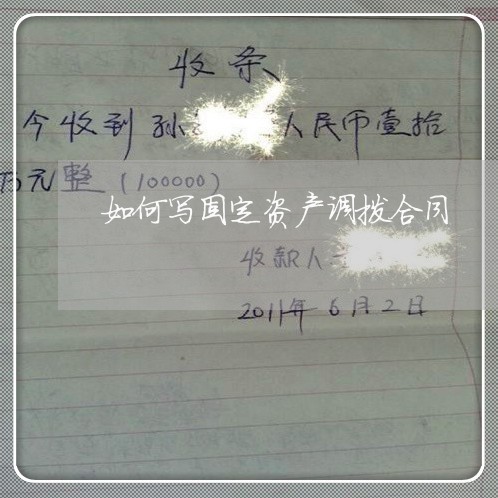 收条
今收到孙 人民币壹拾
万元整（100000）
如何写固定资产调拨合同
收款人
2011年6月2日